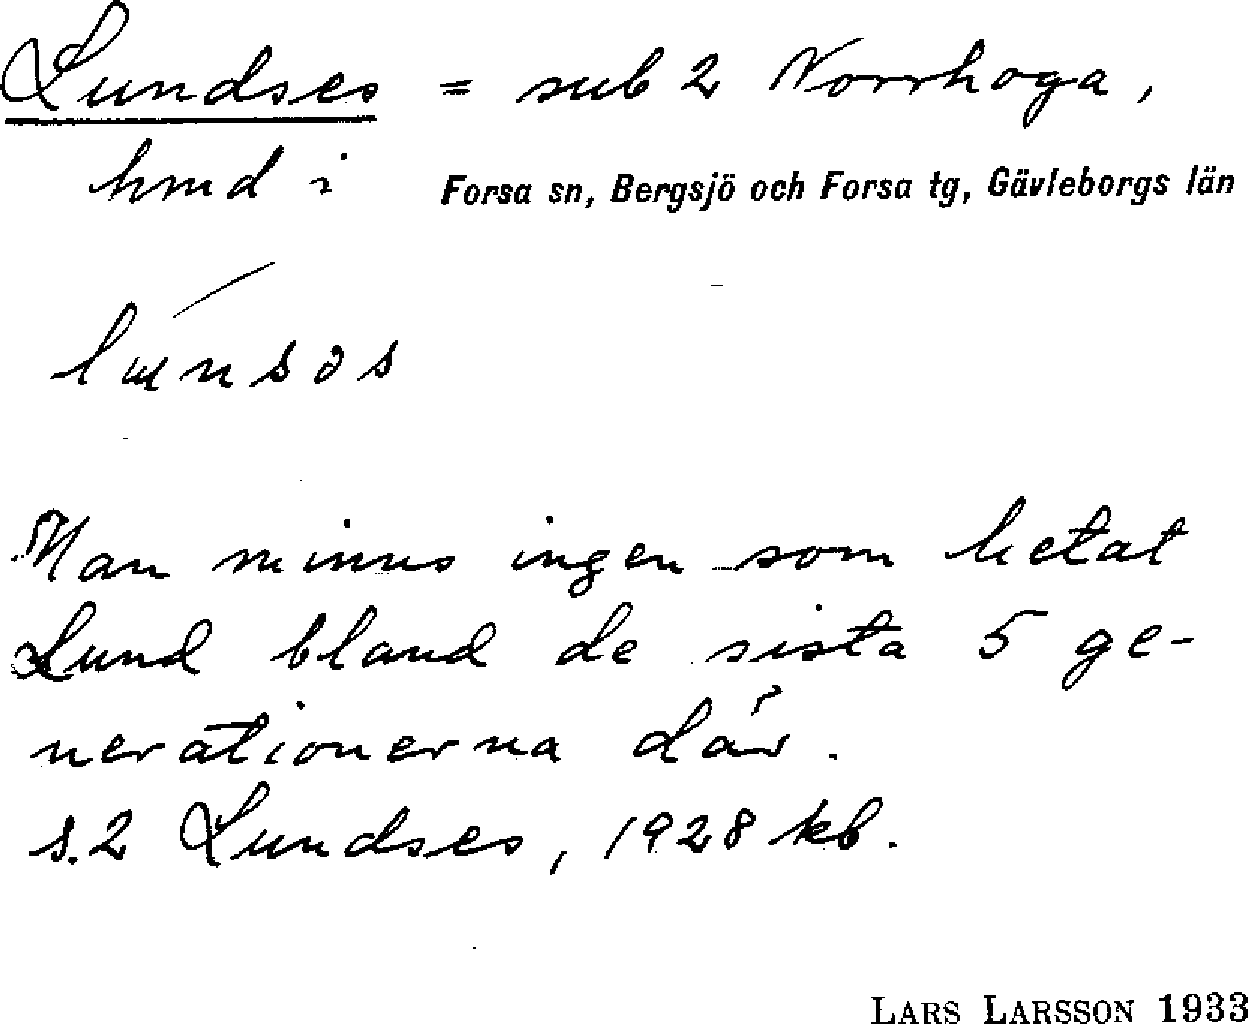 Lundses = sub 2 Norrhoga,
hmd i Forsa sn, Bergsjö och Forsa tg, Gävleborgs län
Man minns ingen som hetat
Lund bland de sista 5 ge-
nerationerna där.
s. 2 Lundses, 1928 kb.
LARS LARSSON 1933